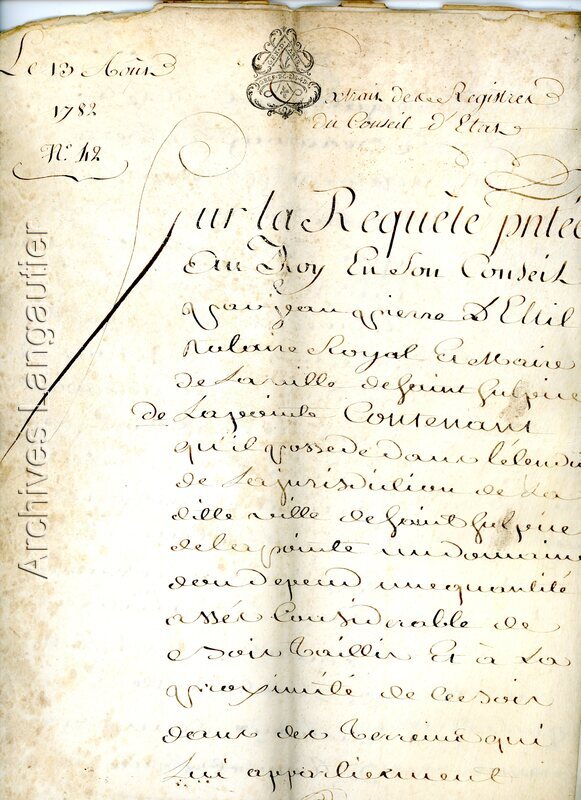 Le 13 Aoust
1782
N.° 42
Extrait des Registres
du Conseil d'Etat
Sur la Requête pntée
Au Roy En Son Conseil
par jean pierre D'Ettil
notaire Royal Et Maire
de La ville de Saint Sulpice
de Lapointe Contenant
qu'il possede dans l'étendu
de La jurisdiction de La
ditte ville de Saint Sulpice
de la pointe un domaine
dou depend une quantité
assés Considerable de
bois Taillis Et à La
proximité de ce bois
dans des Terreins qui
Lui appartiennent
Archives Langautier